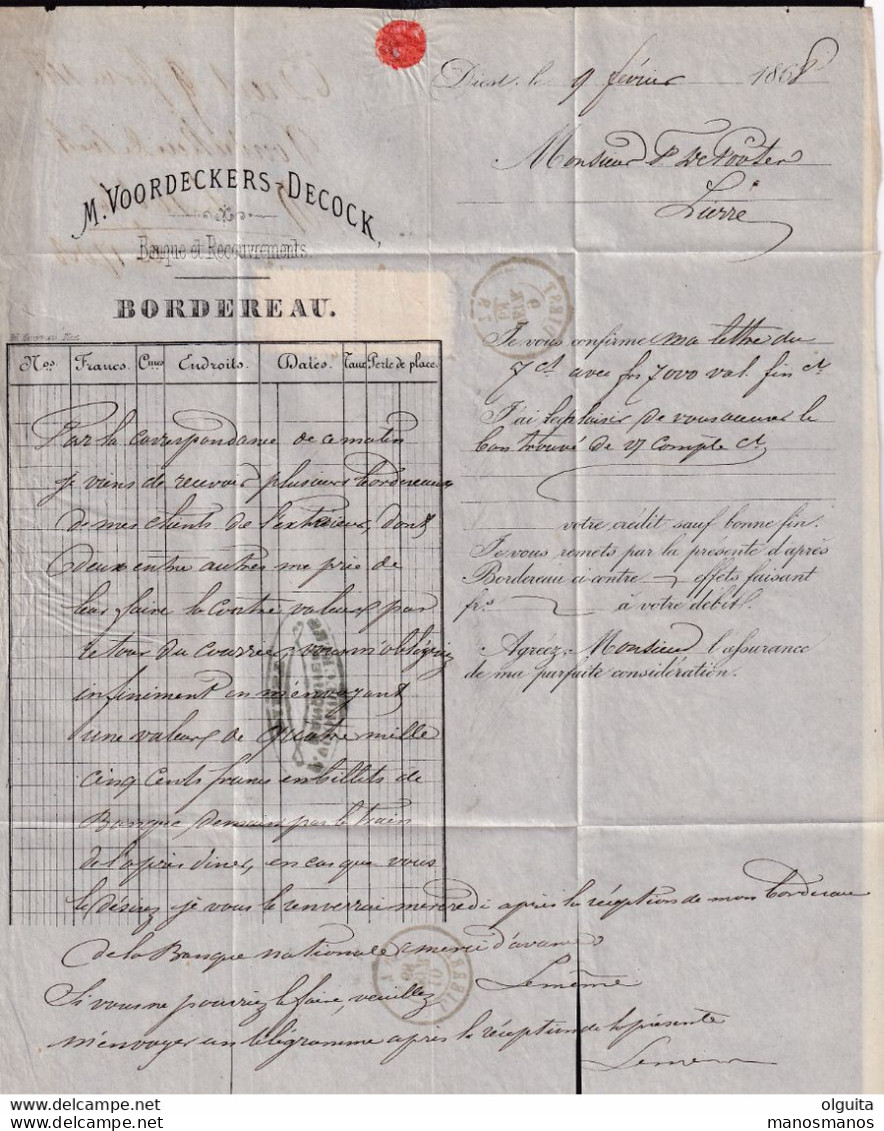 Diest, le 9 février 1868
Monsieur P. De
Lierre
M. VOORDECKERS-DECOCK,
Banque et Recouvrements.
BORDEREAU.
Nos. Francs. Cmes Endroits. Dates. Taux Perte de place.
Je vous confirme ma lettre du
7 ct avec frs 7000 val. fin ct
J'ai le plaisir de vous accuser le
bon trouvé de Compte ct
votre crédit sauf bonne fin.
Je vous remets par la présente d'après
Bordereau ci-contre effets faisant
frs. à votre débit.
Agréez, Monsieur l'assurance
de ma parfaite considération.
Par la correspondance de ce matin
je viens de recevoir plusieurs bordereaux
de mes clients de l'extérieur, dont
deux entre autres me prie de
leur faire la contre valeur par
retour du courrier, vous m'obligeriez
infiniment en m'envoyant
une valeur de quatre mille
cinq cents francs en billets de
Banque demain par le train
de l'après diner, en cas que vous
le désirez je vous le renverrai mercredi après la réception de mon bordereau
de la Banque nationale merci d'avance
Le même
Si vous ne pouviez le faire, veuillez
m'envoyer un télégramme après la réception de la présente
Le même
olguita
manosmanos